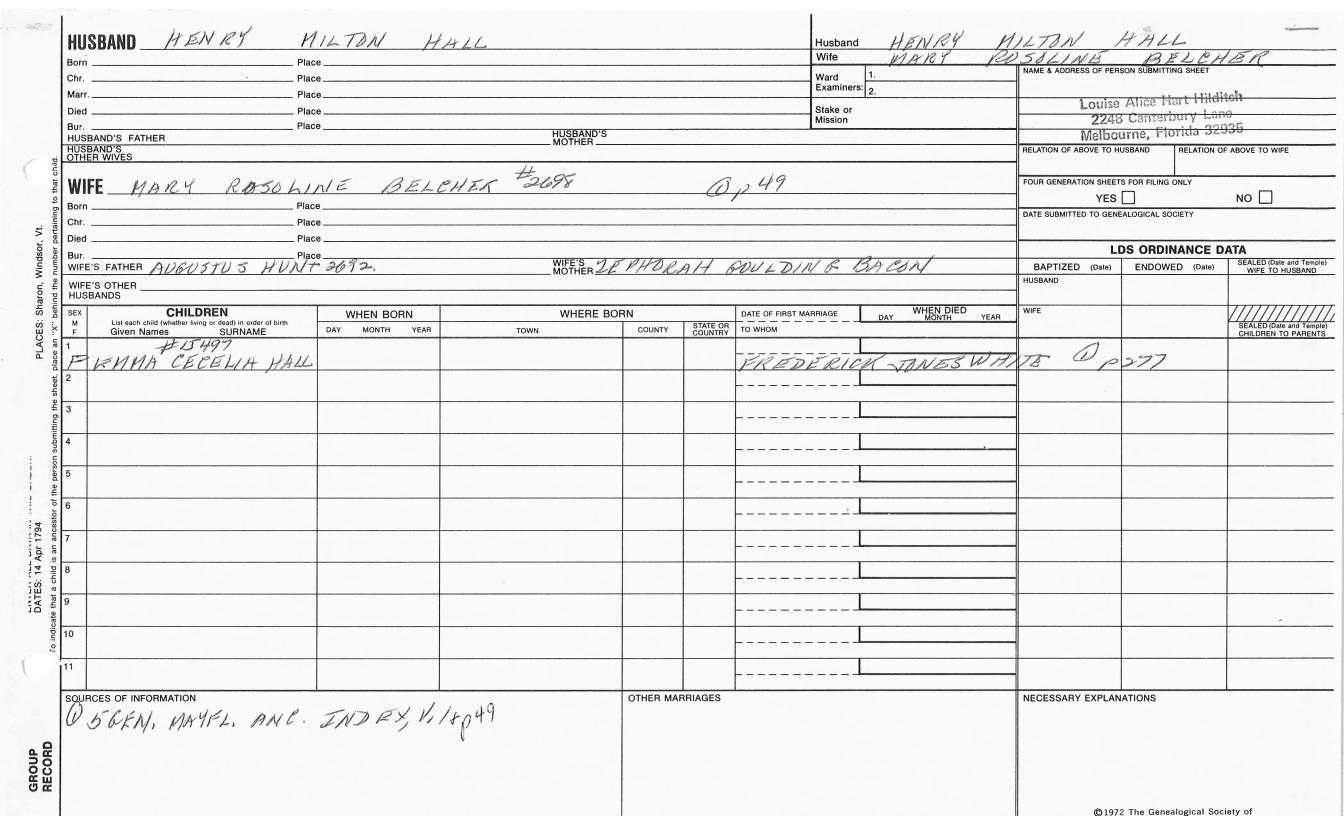 HUSBAND HENRY MILTON HALL
Born Place
Chr. Place
Marr. Place
Died Place
Bur. Place
HUSBAND'S FATHER HUSBAND'S MOTHER
HUSBAND'S OTHER WIVES
WIFE MARY ROSOLINE BELCHER #2698 ① p 49
Born Place
Chr. Place
Died Place
Bur. Place
WIFE'S FATHER AUGUSTUS HUNT 2692. WIFE'S MOTHER ZEPHORAH GOULDING BACON
WIFE'S OTHER HUSBANDS
Husband HENRY MILTON HALL
Wife MARY ROSOLINE BELCHER
Ward Examiners: 1.
2.
Stake or Mission
NAME & ADDRESS OF PERSON SUBMITTING SHEET
Louise Alice Hart Hilditch
2248 Canterbury Lane
Melbourne, Florida 32935
RELATION OF ABOVE TO HUSBAND RELATION OF ABOVE TO WIFE
FOUR GENERATION SHEETS FOR FILING ONLY
YES NO
DATE SUBMITTED TO GENEALOGICAL SOCIETY
LDS ORDINANCE DATA
BAPTIZED (Date) ENDOWED (Date) SEALED (Date and Temple) WIFE TO HUSBAND
HUSBAND
WIFE
SEALED (Date and Temple) CHILDREN TO PARENTS
SEX M F
CHILDREN
List each child (whether living or dead) in order of birth
Given Names SURNAME
WHEN BORN
DAY MONTH YEAR
WHERE BORN
TOWN COUNTY STATE OR COUNTRY
DATE OF FIRST MARRIAGE
TO WHOM
WHEN DIED
DAY MONTH YEAR
1 #15497
F EMMA CECELIA HALL FREDERICK JONES WHITE ① p277
2
3
4
5
6
7
8
9
10
11
SOURCES OF INFORMATION
① 5GEN. MAYFL. ANC. INDEX, V. 1+p49
OTHER MARRIAGES
NECESSARY EXPLANATIONS
©1972 The Genealogical Society of
PLACES: Sharon, Windsor, Vt.
To indicate that a child is an ancestor of the person submitting the sheet, place an "X" behind the number pertaining to that child.
DATES: 14 Apr 1794
GROUP RECORD